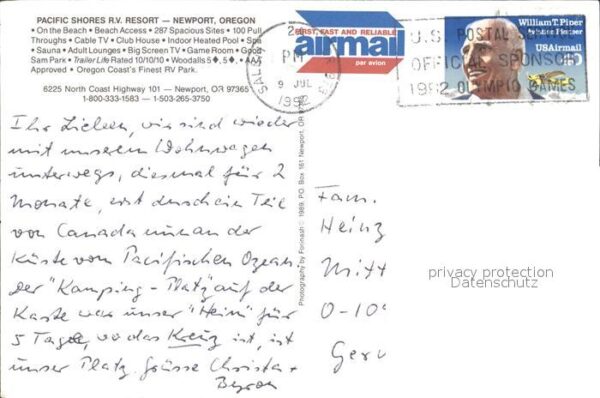 PACIFIC SHORES R.V. RESORT — NEWPORT, OREGON
• On the Beach • Beach Access • 287 Spacious Sites • 100 Pull
Throughs • Cable TV • Club House • Indoor Heated Pool • Spa
• Sauna • Adult Lounges • Big Screen TV • Game Room • Good
Sam Park • Trailer Life Rated 10/10/10 • Woodalls 5♦, 5♦. • AAA
Approved • Oregon Coast's Finest RV Park.
6225 North Coast Highway 101 — Newport, OR 97365
1-800-333-1583 — 1-503-265-3750
Ihr Lieben, wir sind wieder
mit unserem Wohnwagen
unterwegs, diesmal für 2
Monate, erst durch ein Teil
von Canada nun an der
Küste vom Pacifischen Ozean.
Der "Kamping-Platz" auf der
Karte war unser "Heim" für
5 Tage, wo das Kreuz ist, ist
unser Platz. Grüsse Christa +
Byron
FIRST, FAST AND RELIABLE
airmail
par avion
PM
9 JUL
1992
U.S. POSTAL SERVICE
OFFICIAL SPONSOR
1992 OLYMPIC GAMES
William T. Piper
Aviation Pioneer
USAirmail
Photography by Forinash © 1989, P.O. Box 161 Newport, OR
Fam.
Heinz
Mitt
O-10
privacy protection
Datenschutz